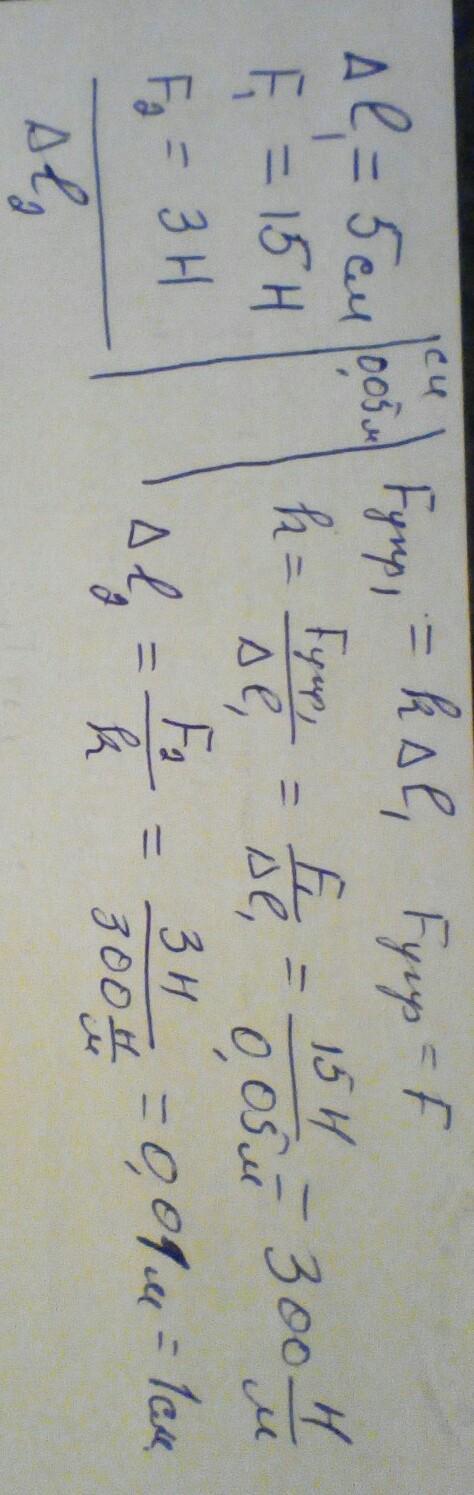 Δl₁ = 5 см
F₁ = 15 Н
F₂ = 3 Н
Δl₂
си
0,05 м
Fупр₁ = kΔl₁ Fупр = F
k = Fупр₁/Δl₁ = F₁/Δl₁ = 15 Н/0,05 м = 300 Н/м
Δl₂ = F₂/k = 3 Н/300 Н/м = 0,01 м = 1 см